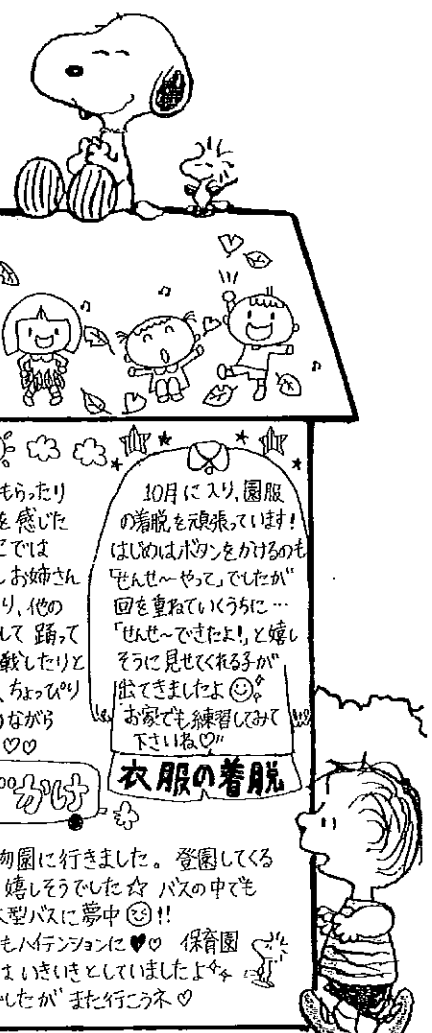 もらったり
を感じた
こでは
しお姉さん
り、他の
して踊って
戦したりと
、ちょっぴり
ながら
♡♡
10月に入り、園服
の着脱を頑張っています!
はじめはボタンをかけるのも
「せんせ〜やって」でしたが
回を重ねていくうちに…
「せんせ〜できたよ!」と嬉し
そうに見せてくれる子が
出てきましたよ☺
お家でも練習してみて
下さいね♡"
衣服の着脱
かけ
物園に行きました。登園してくる
嬉しそうでした☆ バスの中でも
大型バスに夢中☺!!
もハイテンションに♥♡ 保育園
はいきいきとしていましたよ
したがまた行こうネ♡